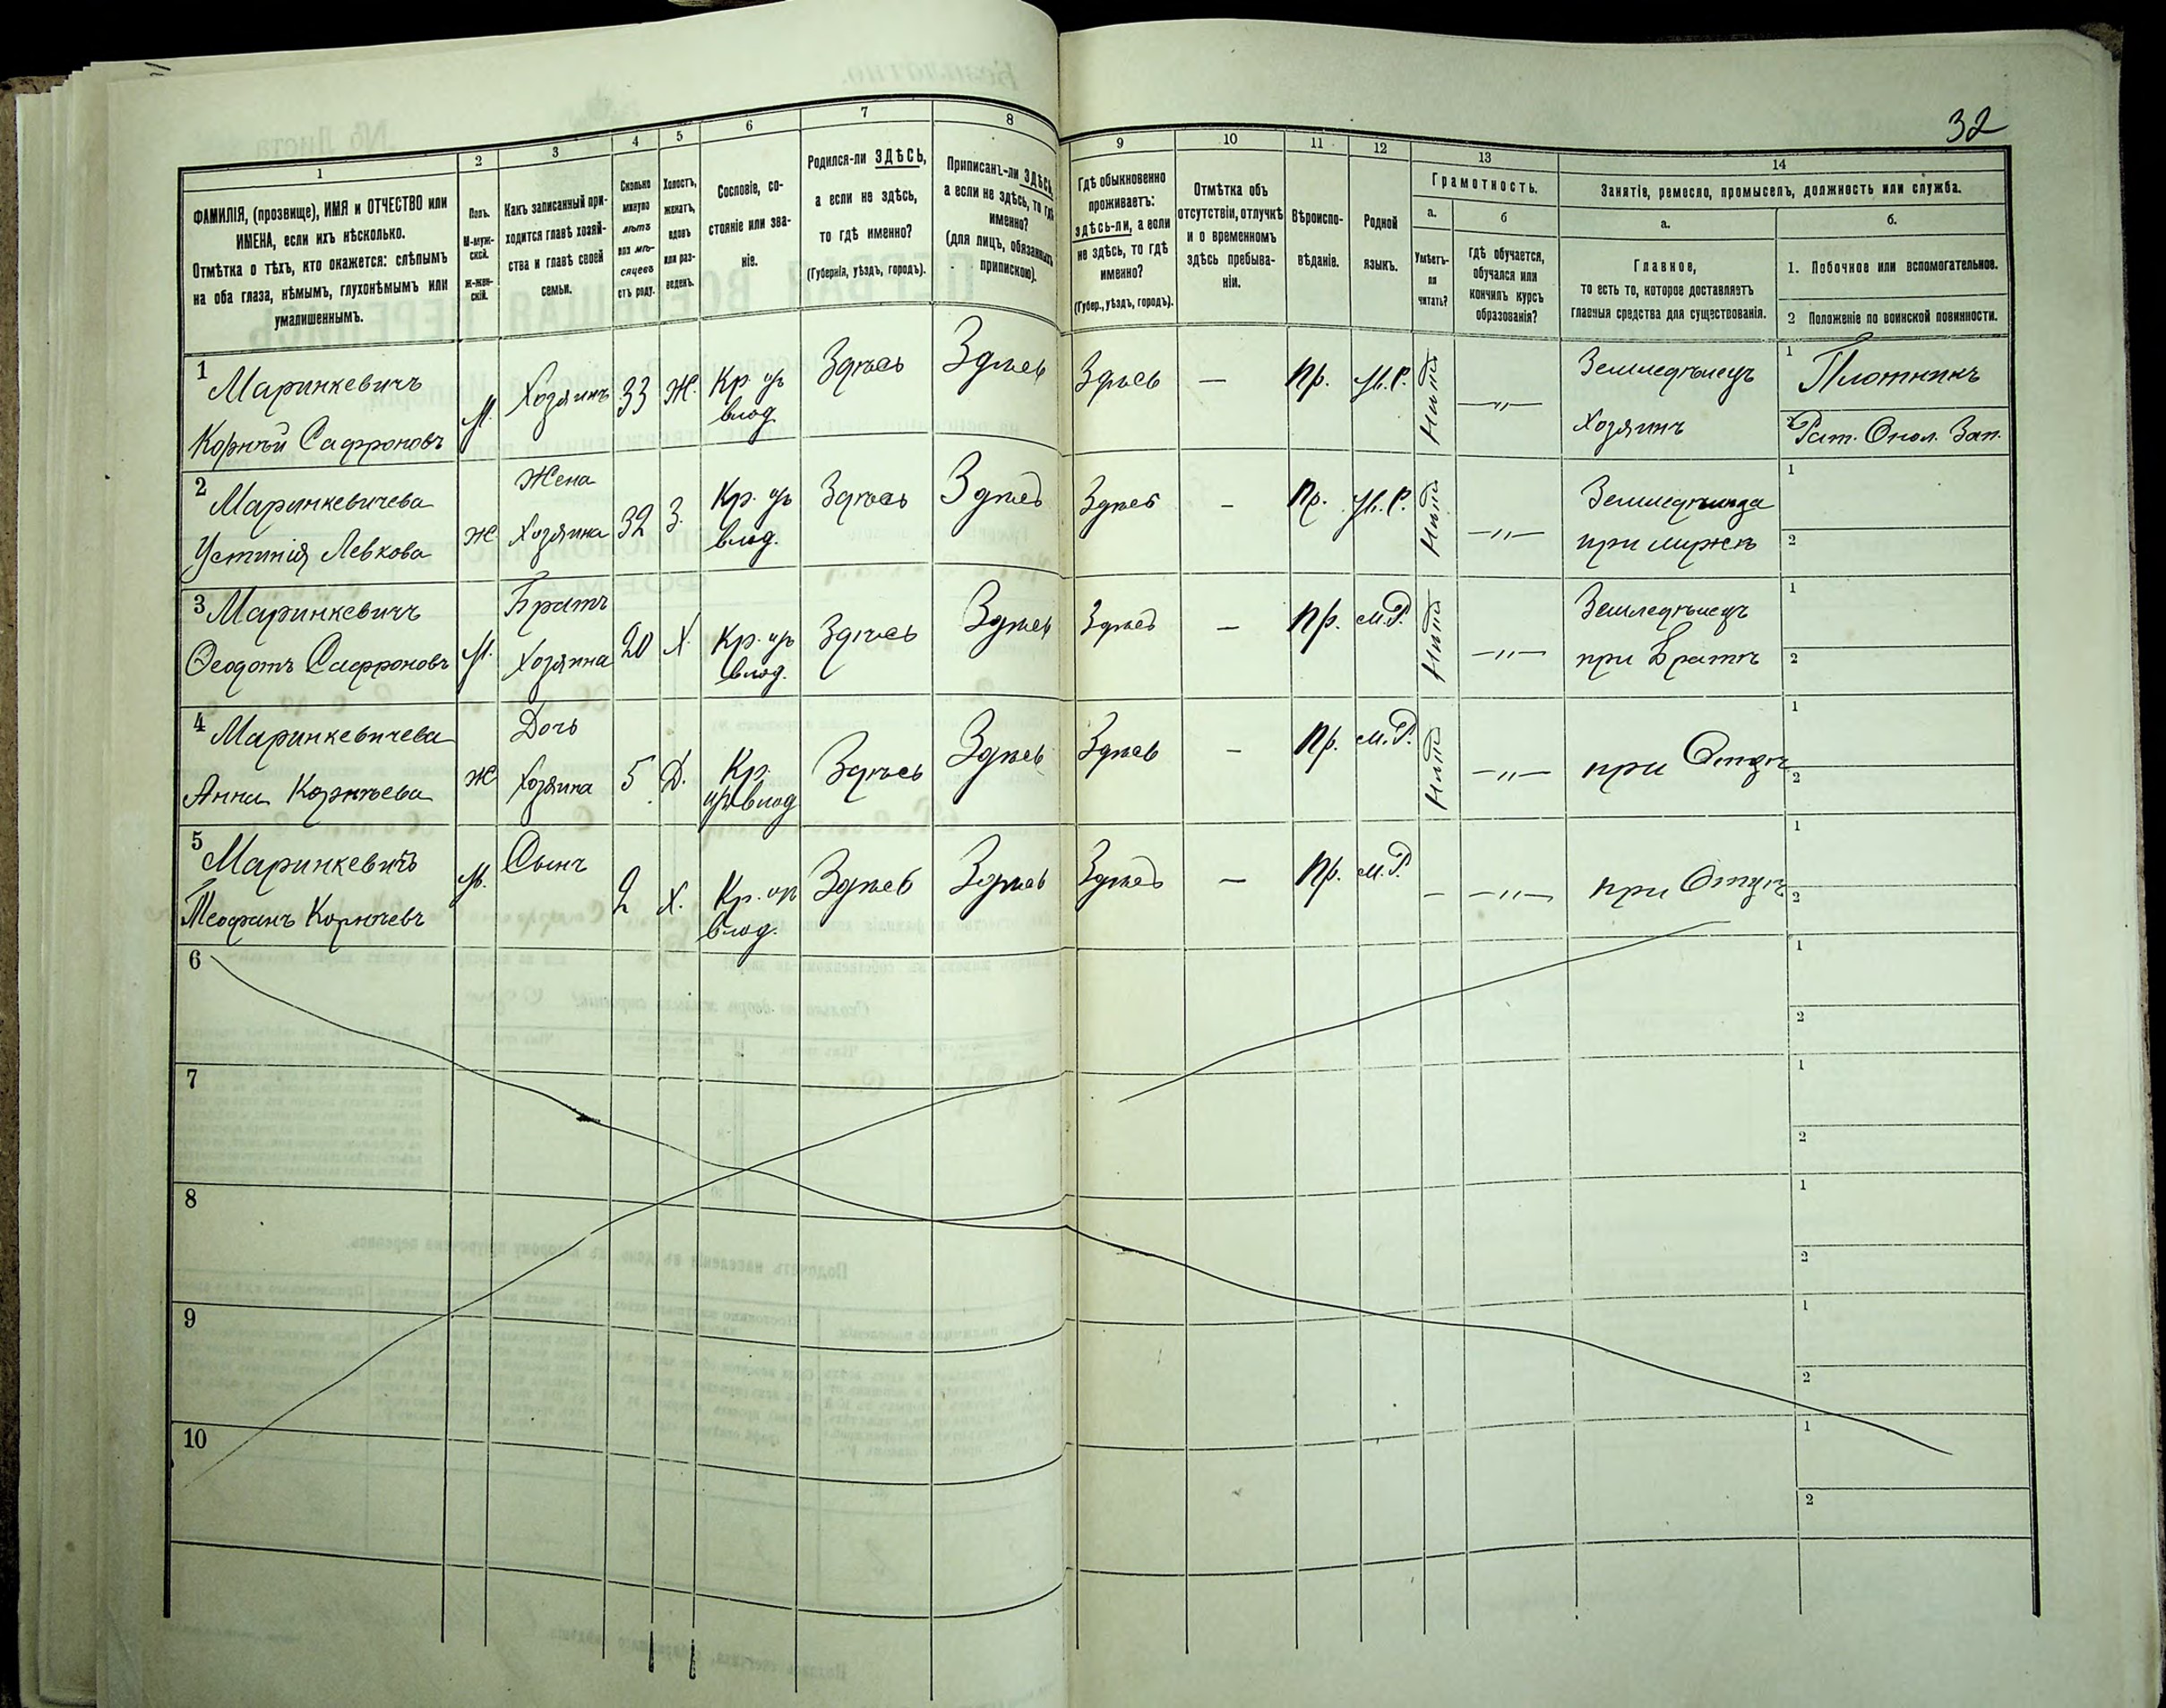 32
1
2
3
4
5
6
7
8
9
10
11
12
13
14
ФАМИЛІЯ, (прозвище), ИМЯ и ОТЧЕСТВО или
ИМЕНА, если ихъ нѣсколько.
Отмѣтка о тѣхъ, кто окажется: слѣпымъ
на оба глаза, нѣмымъ, глухонѣмымъ или
умалишеннымъ.
Полъ.
М-муж-
ской.
Ж-жен-
скій.
Какъ записанный при-
ходится главѣ хозяй-
ства и главѣ своей
семьи.
Сколько
минуло
лѣтъ
или мѣ-
сяцевъ
отъ роду.
Холостъ,
женатъ,
вдовъ
или раз-
веденъ.
Сословіе, со-
стояніе или зва-
ніе.
Родился-ли ЗДѢСЬ,
а если не здѣсь,
то гдѣ именно?
(Губернія, уѣздъ, городъ).
Приписанъ-ли ЗДѢСЬ,
а если не здѣсь, то гдѣ
именно?
(для лицъ, обязанныхъ
припискою).
Гдѣ обыкновенно
проживаетъ:
здѣсь-ли, а если
не здѣсь, то гдѣ
именно?
(Губер., уѣздъ, городъ).
Отмѣтка объ
отсутствіи, отлучкѣ
и о временномъ
здѣсь пребыва-
ніи.
Вѣроиспо-
вѣданіе.
Родной
языкъ.
Грамотность.
а.
Умѣетъ-
ли
читать?
б
Гдѣ обучается,
обучался или
кончилъ курсъ
образованія?
Занятіе, ремесло, промыселъ, должность или служба.
а.
Главное,
то есть то, которое доставляетъ
главныя средства для существованія.
б.
1. Побочное или вспомогательное.
2 Положеніе по воинской повинности.
1 Маринкевичъ
Корнѣй Сафроновъ
М.
Хозяинъ
33
Ж.
Кр. изъ
влад.
Здѣсь
Здѣсь
Здѣсь
—
Пр.
М.Р.
Нѣтъ
—"—
Земледѣлецъ
Хозяинъ
1 Плотникъ
2 Рат. Опол. Зап.
2 Маринкевичева
Устинія Левкова
Ж
Жена
Хозяина
32
З.
Кр. изъ
влад.
Здѣсь
Здѣсь
Здѣсь
—
Пр.
М.Р.
Нѣтъ
—"—
Земледѣлица
при мужѣ
1
2
3 Маринкевичъ
Ѳеодотъ Сафроновъ
М.
Братъ
Хозяина
20
Х
Кр. изъ
влад.
Здѣсь
Здѣсь
Здѣсь
—
Пр.
М.Р.
Нѣтъ
—"—
Земледѣлецъ
при Братѣ
1
2
4 Маринкевичева
Анна Корнѣева
Ж
Дочь
Хозяина
5
Д.
Кр.
изъ влад
Здѣсь
Здѣсь
Здѣсь
—
Пр.
М.Р.
Нѣтъ
—"—
при Отцѣ
1
2
5 Маринкевичъ
Корнѣевъ
М.
Сынъ
2
Х.
Кр. изъ
влад.
Здѣсь
Здѣсь
Здѣсь
—
Пр.
М.Р.
—
—"—
при Отцѣ
1
2
6
1
2
7
1
2
8
1
2
9
1
2
10
1
2